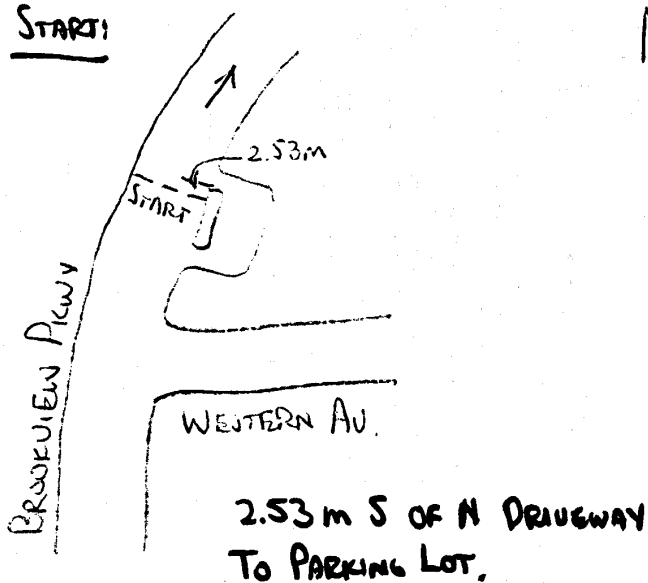 START:
2.53m
START
BROOKVIEW PKWY
WESTERN AV.
2.53 m S OF N DRIVEWAY
TO PARKING LOT.